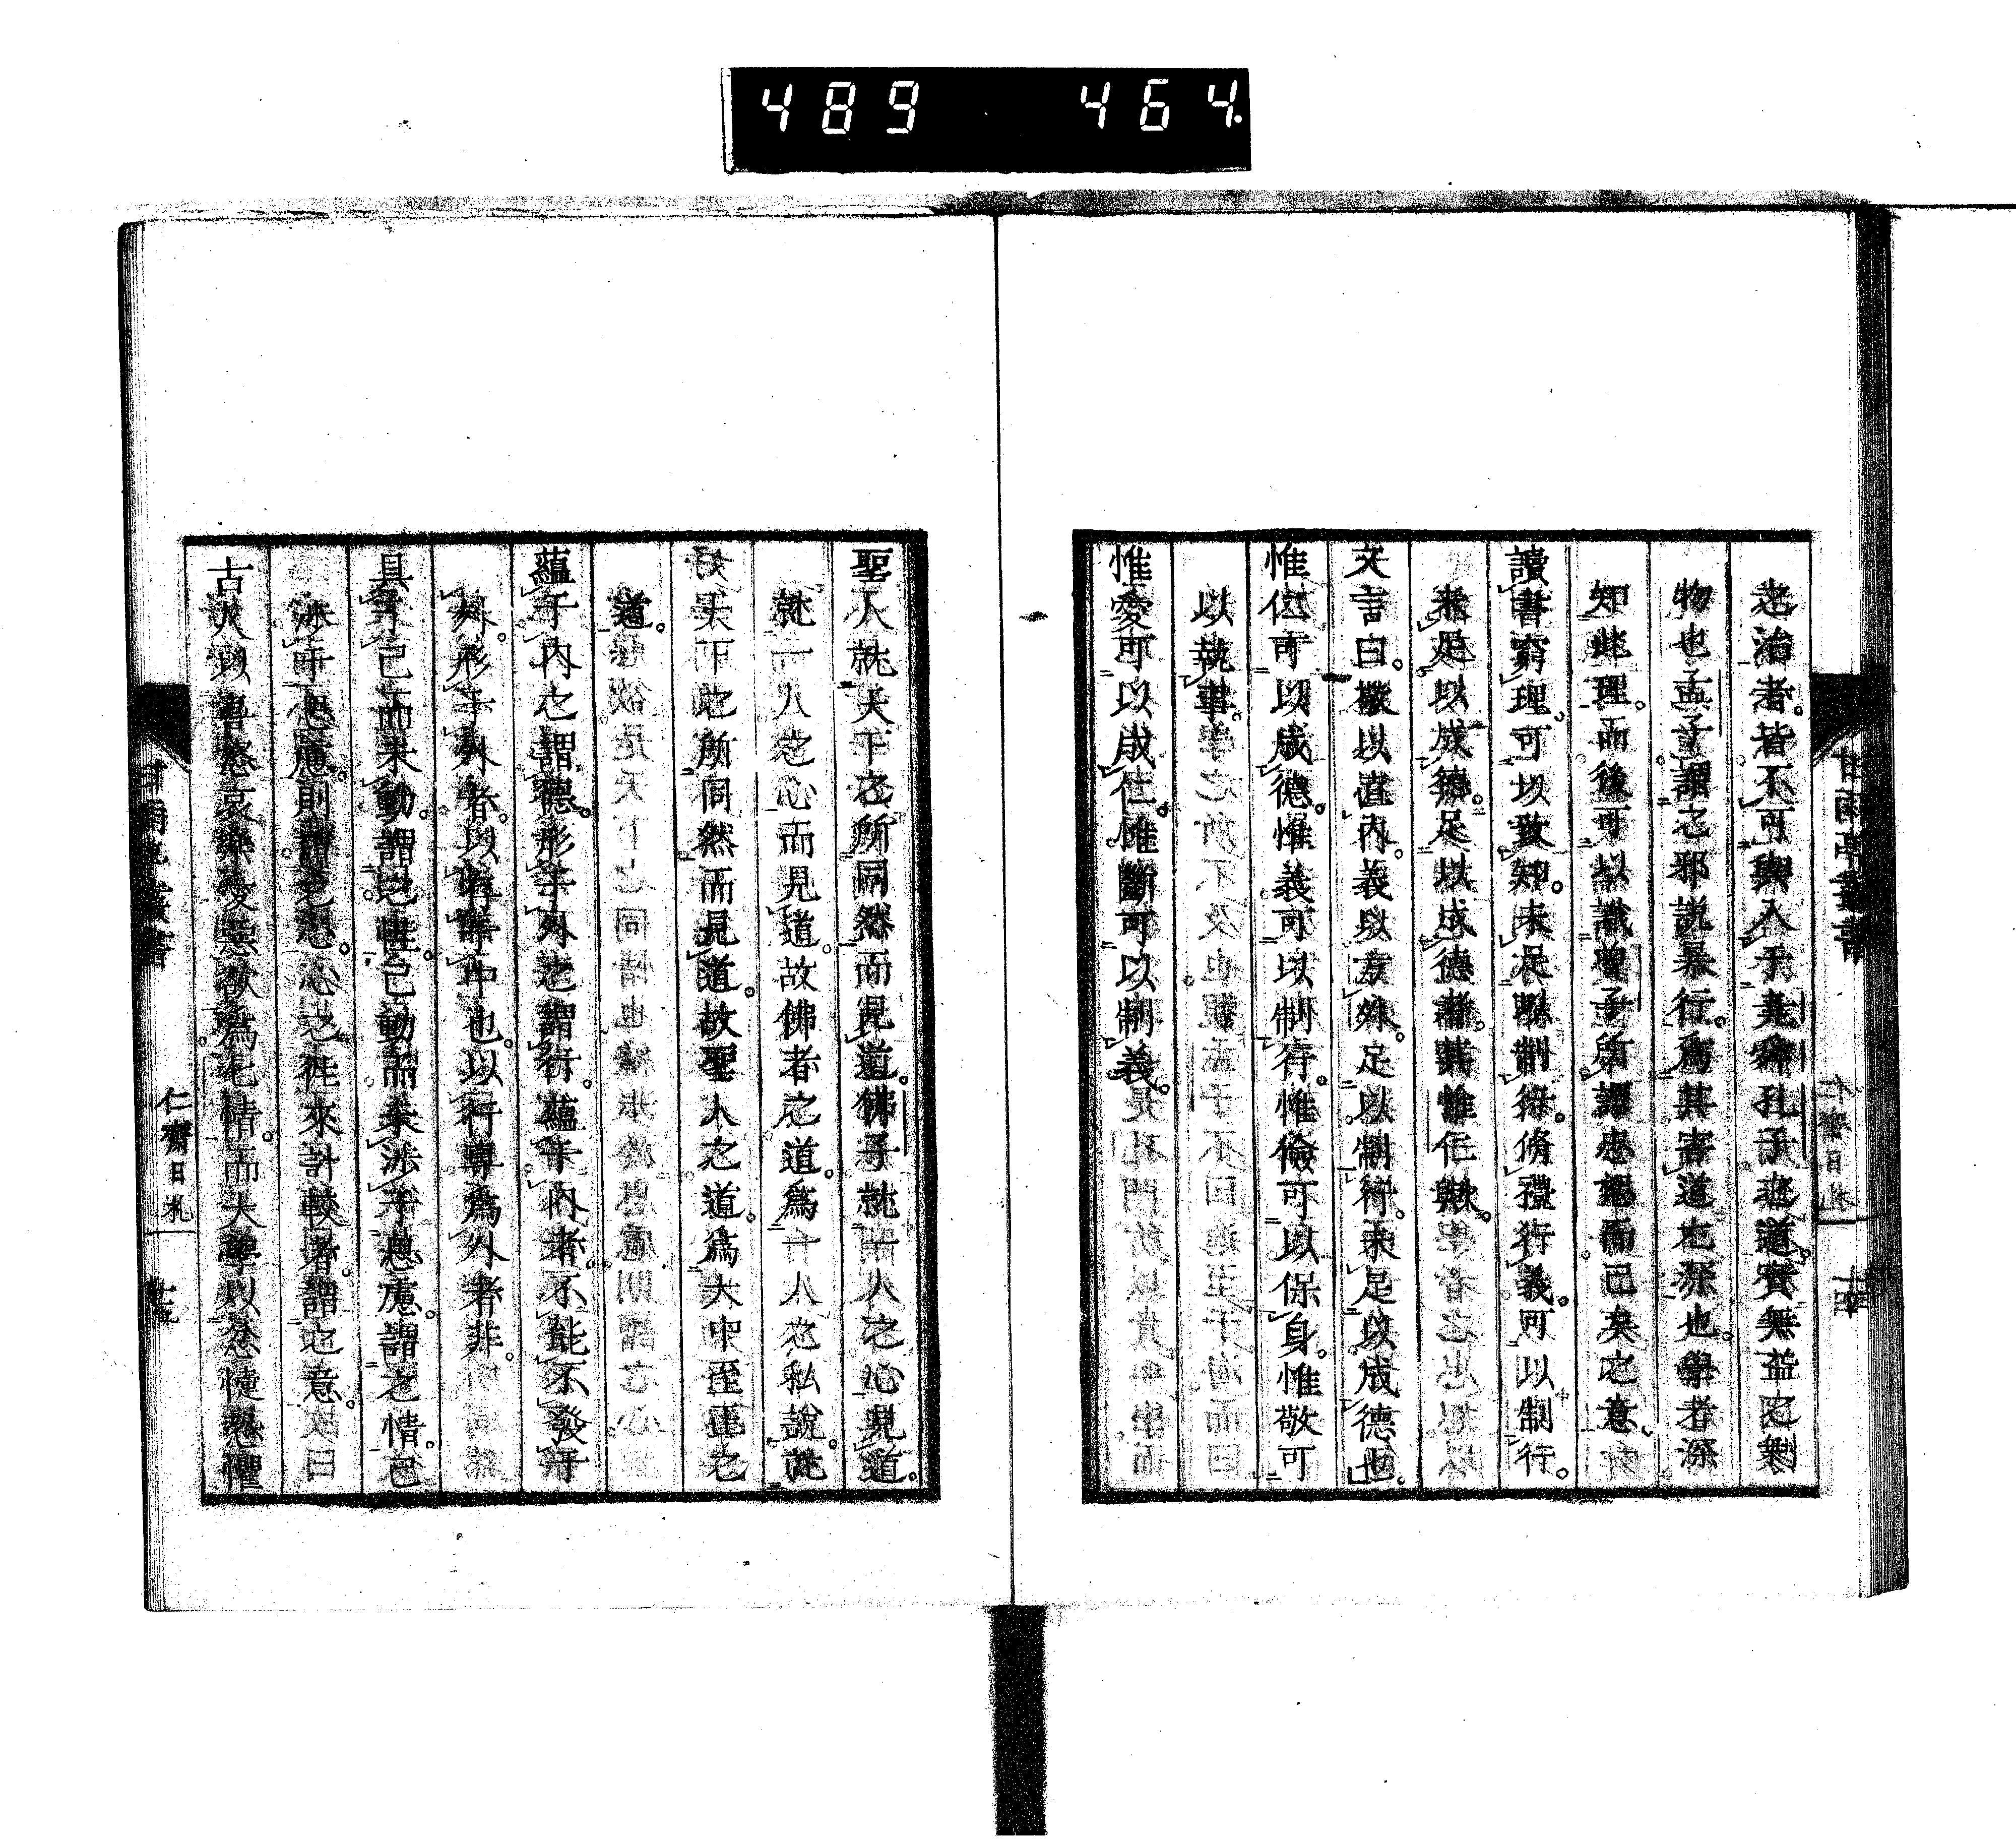 489 464.
之治者。皆不可與入于堯舜孔子之道。實無益之剩
物也。孟子謂之邪說暴行。為其害道之深也。學者深
知此理。而後可以識曾子所謂忠恕而已矣之意。
讀書窮理。可以致知。未足以制行。脩禮行義。可以制行。
未足以成德。足以成德者。其惟仁歟。
文言曰。敬以直內。義以方外。足以制行。未足以成德也。
惟仁可以成德。惟義可以制行。惟儉可以保身。惟敬可
以執事。
惟愛可以成仁。惟斷可以制義。
甘雨亭叢書
仁齋日札
聖人就天下之所同然而見道。佛子就一人之心見道。
就一人之心而見道。故佛者之道。為一人之私說。就
天下之所同然而見道。故聖人之道。為大中至正之
道。
蘊于內之謂德。形于外之謂行。蘊于內者。不能不發于
外。形于外者。以得乎中也。以行專為外者非。
具于己而未動。謂之性。已動而未涉于思慮。謂之情。已
涉于思慮。則謂之心。心之往來計較者。謂之意。
古人以喜怒哀樂愛惡欲為七情。而大學以忿懥恐懼
甘雨亭叢書
仁齋日札